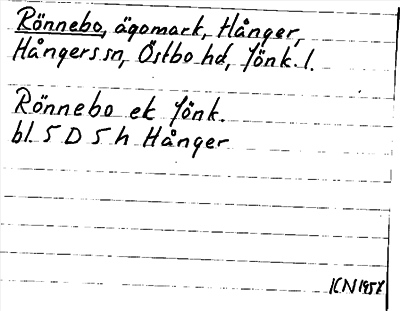 Rönnebo, ägomark, Hånger,
Hångers sn, Östbo hd, Jönk. l.
Rönnebo ek Jönk.
bl. 5 D 5 h Hånger
ICN 1957